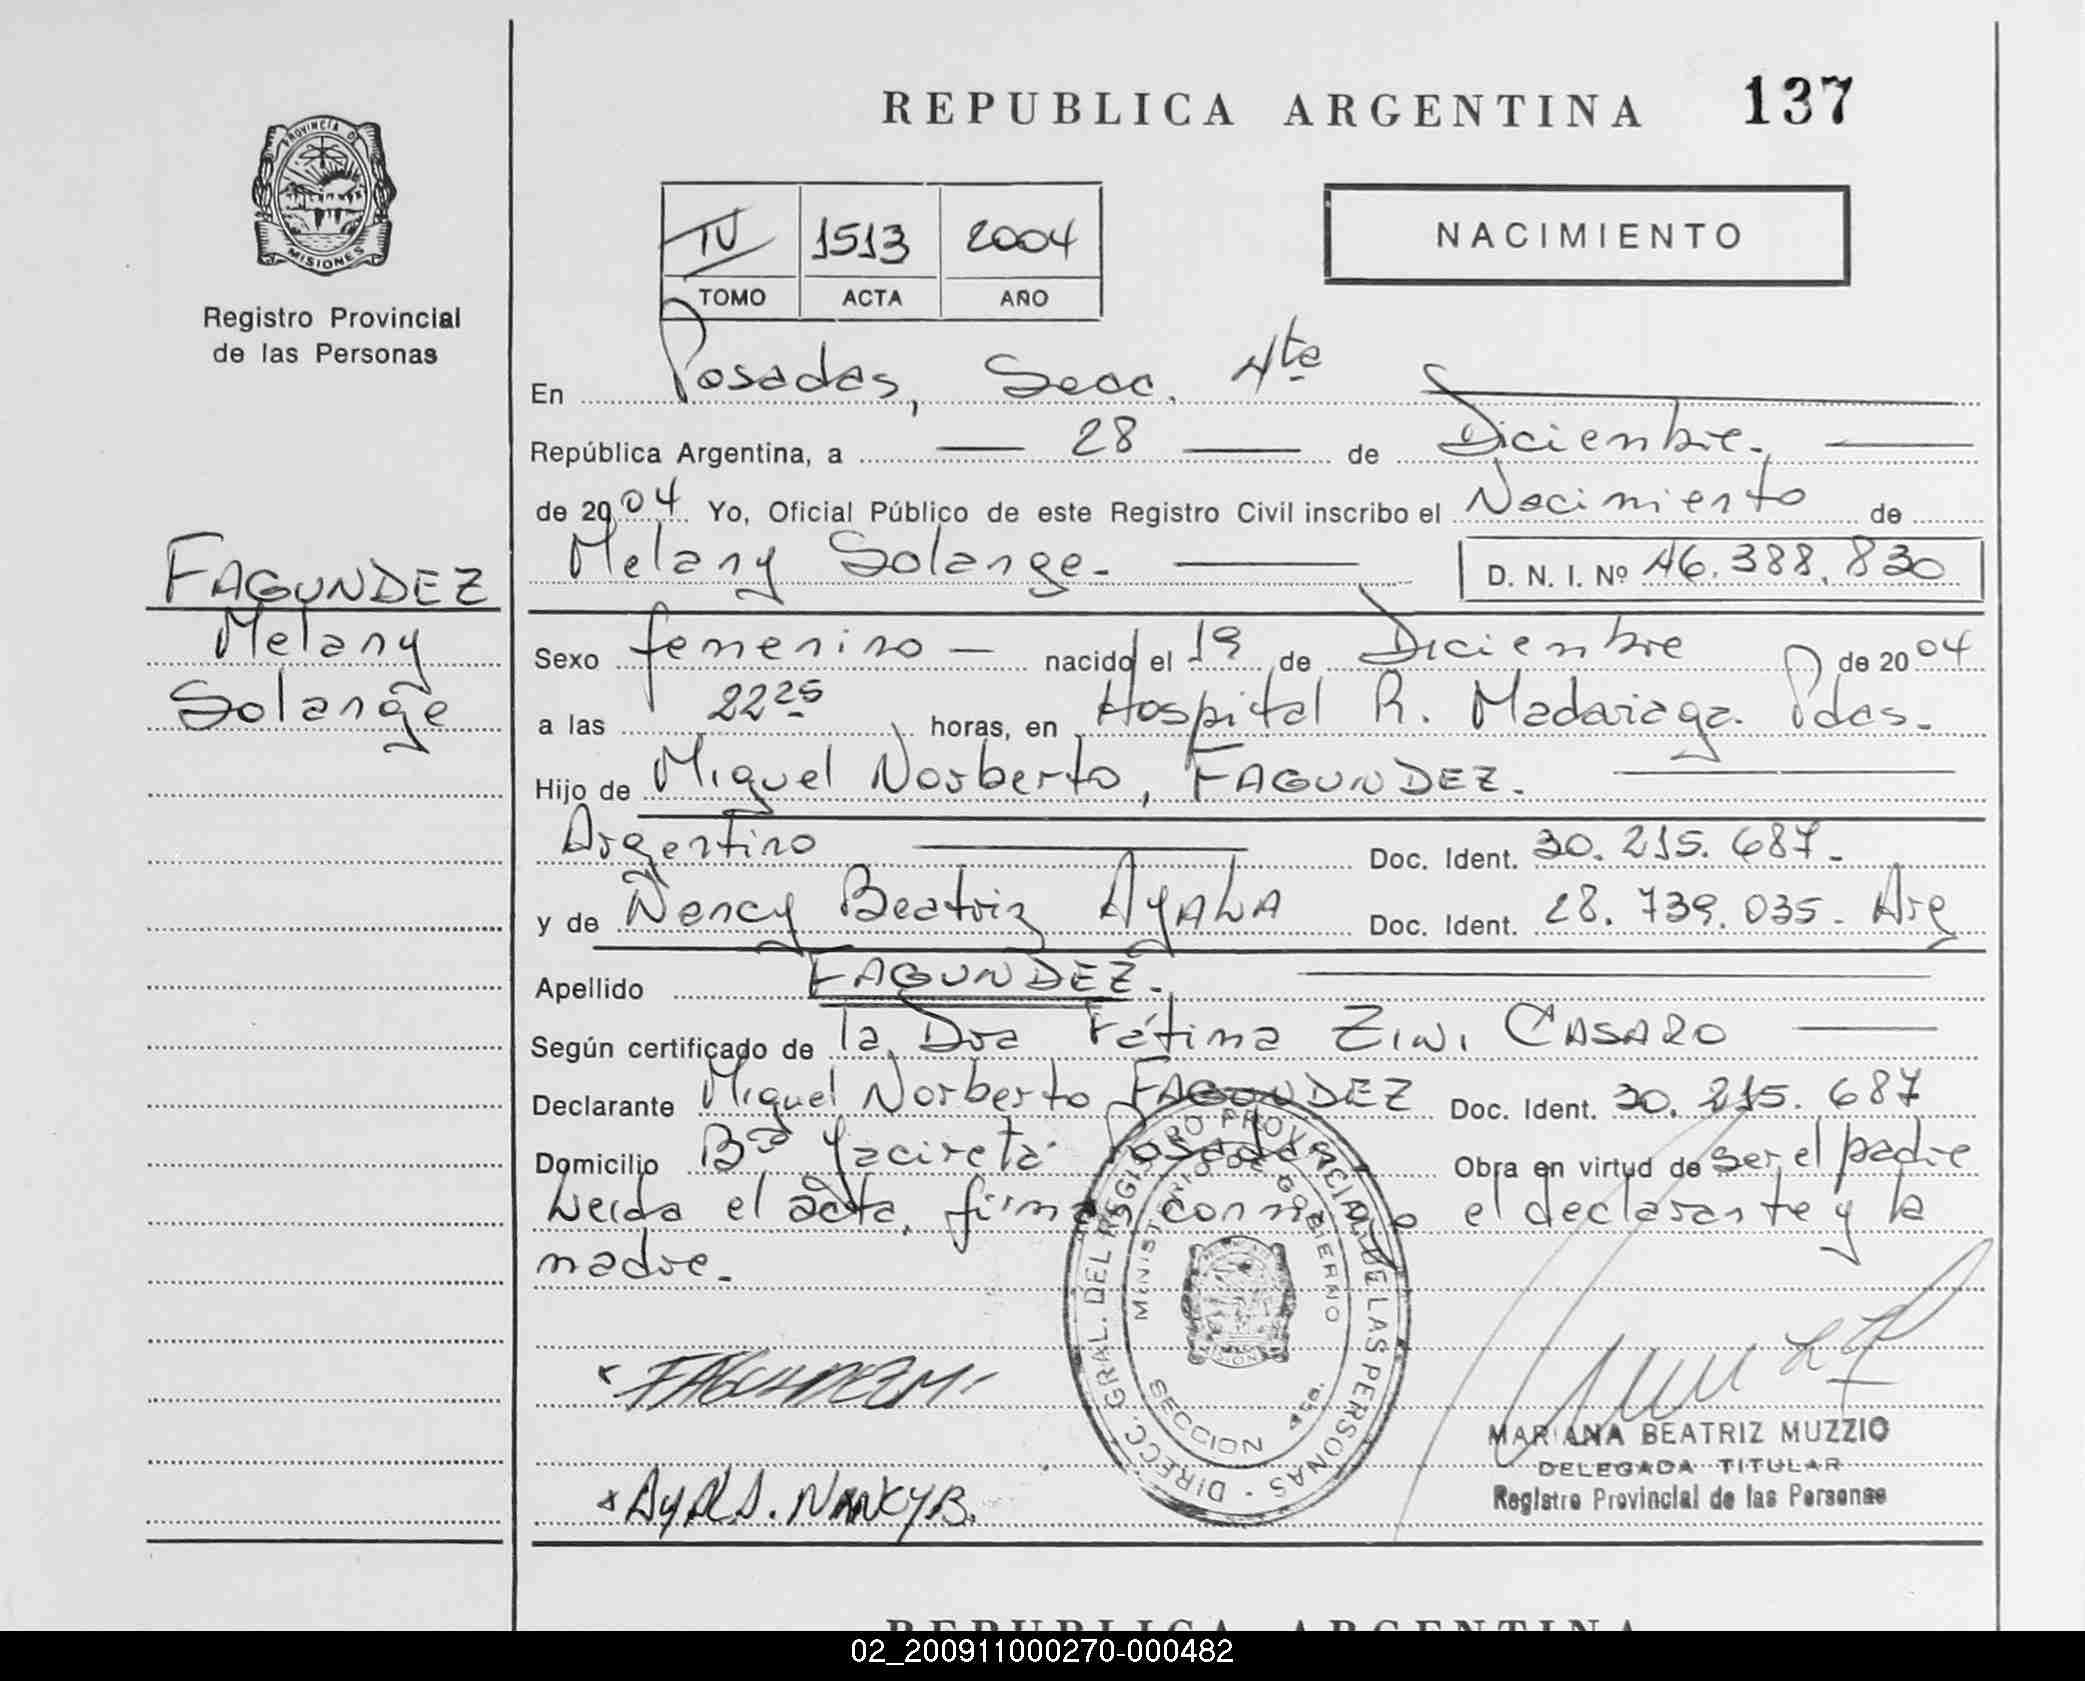 REPUBLICA ARGENTINA 137
PROVINCIA DE
MISIONES
Registro Provincial
de las Personas
IV 1513 2004
TOMO ACTA AÑO
NACIMIENTO
En Posadas, Secc. 4ta
República Argentina, a 28 de Diciembre.
de 2004 Yo, Oficial Público de este Registro Civil inscribo el Nacimiento de
Melany Solange. D. N. I. Nº 46.388.830
FAGUNDEZ
Melany
Solange
Sexo femenino nacido el 19 de Diciembre de 2004
a las 22 25 horas, en Hospital R. Madariaga. Pdas.
Hijo de Miguel Norberto, FAGUNDEZ.
Argentino Doc. Ident. 30.215.687.
y de Nancy Beatriz AyALA Doc. Ident. 28.739.035. Arg
Apellido FAGUNDEZ.
Según certificado de la Dra Fátima ZINI CASARO
Declarante Miguel Norberto FAGUNDEZ Doc. Ident. 30.215.687
Domicilio Bº Yacireta Posadas Obra en virtud de ser el padre
Leida el acta, firman conmigo el declarante y la
madre.
DIRECC. GRAL. DEL REGISTRO PROVINCIAL DE LAS PERSONAS
MINISTERIO DE GOBIERNO
SECCION 4ta.
FAGUNDEZ M
AyALA. NANCY B.
MARIANA BEATRIZ MUZZIO
DELEGADA TITULAR
Registro Provincial de las Personas
REPUBLICA ARGENTINA
02_200911000270-000482